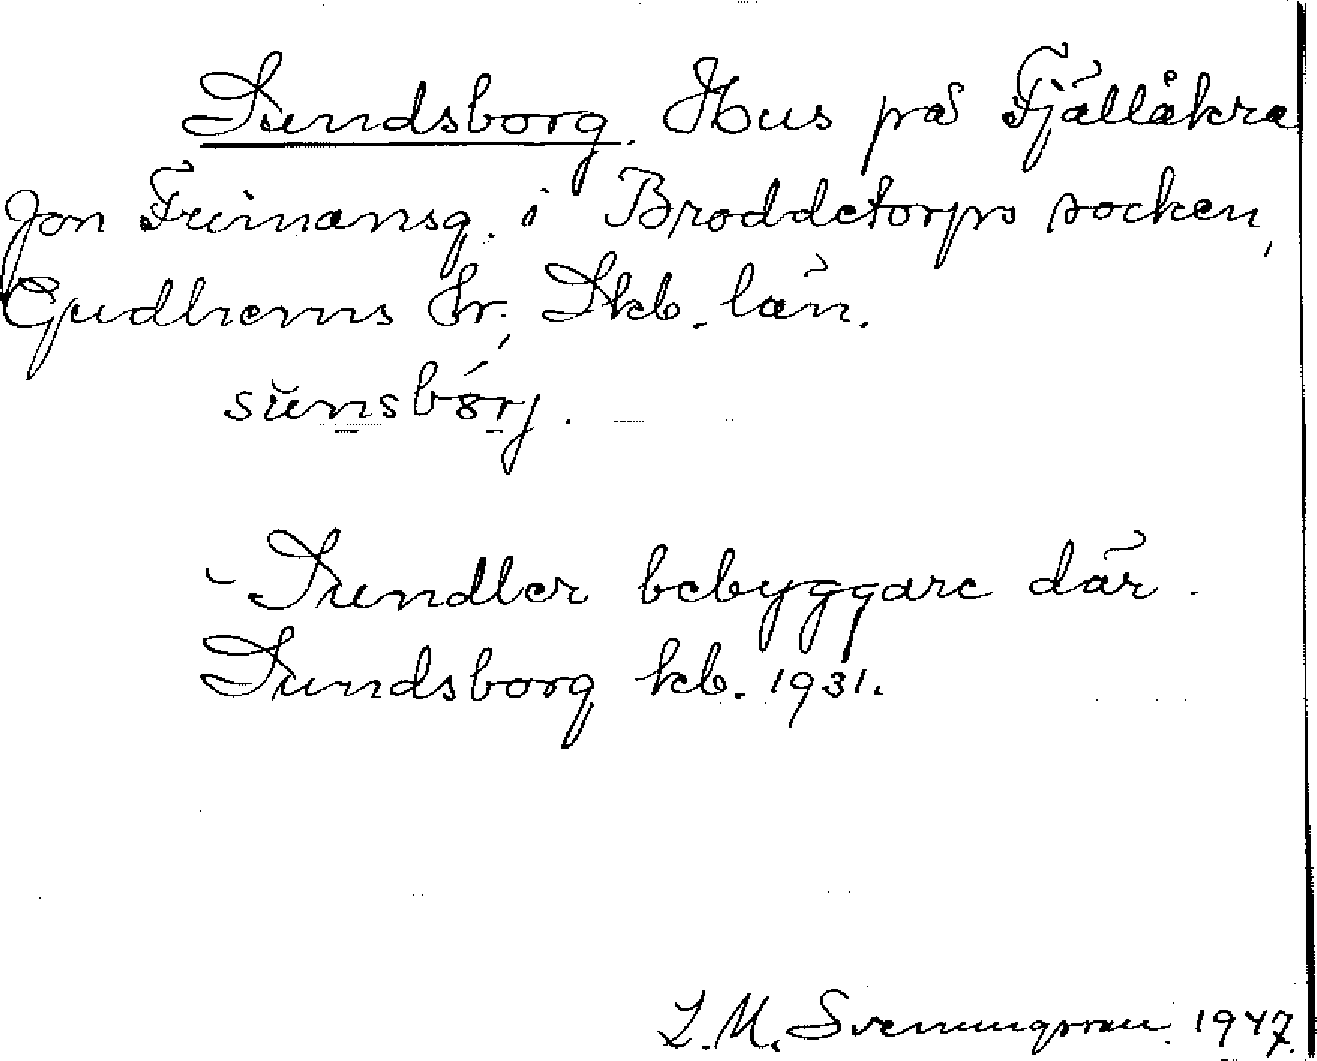 Sundsborg. Hus på Fjällåkra
Jon i Broddetorps socken,
Gudhems hr. Skb. län.
sunsbórj.
- Sundler bebyggare där.
Sundsborg kb. 1931.
L.M. Svenungsson 1947.